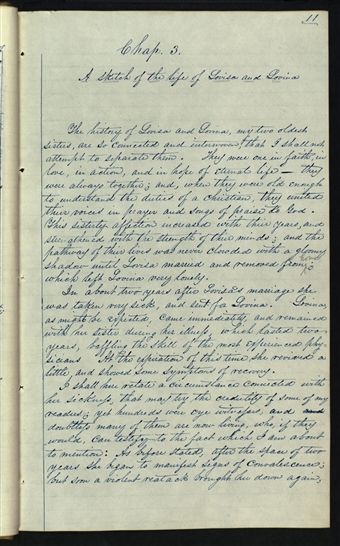 11
Chap. 3.
A sketch of the life of Lovisa and Lovina
The history of Lovisa and Lovina, my two oldest
sisters, are so connected and interwoven, that I shall not
attempt to separate them. They were one in faith, in
love, in action, and in hope of eternal life — they
were always together; and, when they were old enough
to understand the duties of a Christian, they united
their voices in prayer and songs of praise to God.
This sisterly affection increased with their years, and
strengthened with the strength of their minds; and the
pathway of their lives was never clouded with a gloomy
shadow until Lovisa married and removed from home
which left Lovina very lonely.
In about two years after Lovisa's marriage she
was taken very sick, and sent for Lovina. Lovina,
as might be expected, came immediately, and remained
with her sister during her illness, which lasted two
years, baffling the skill of the most experienced phy-
sicians At the expiration of this time she revived a
little, and showed some symptoms of recovery.
I shall here relate a circumstance connected with
her sickness, that may try the credulity of some of my
readers; yet hundreds were eye witnesses, and
doubtless many of them are now living, who, if they
would, can testify to the fact which I am about
to mention: As before stated, after the space of two
years she began to manifest signs of convalescence;
but soon a violent reatack brought her down again,